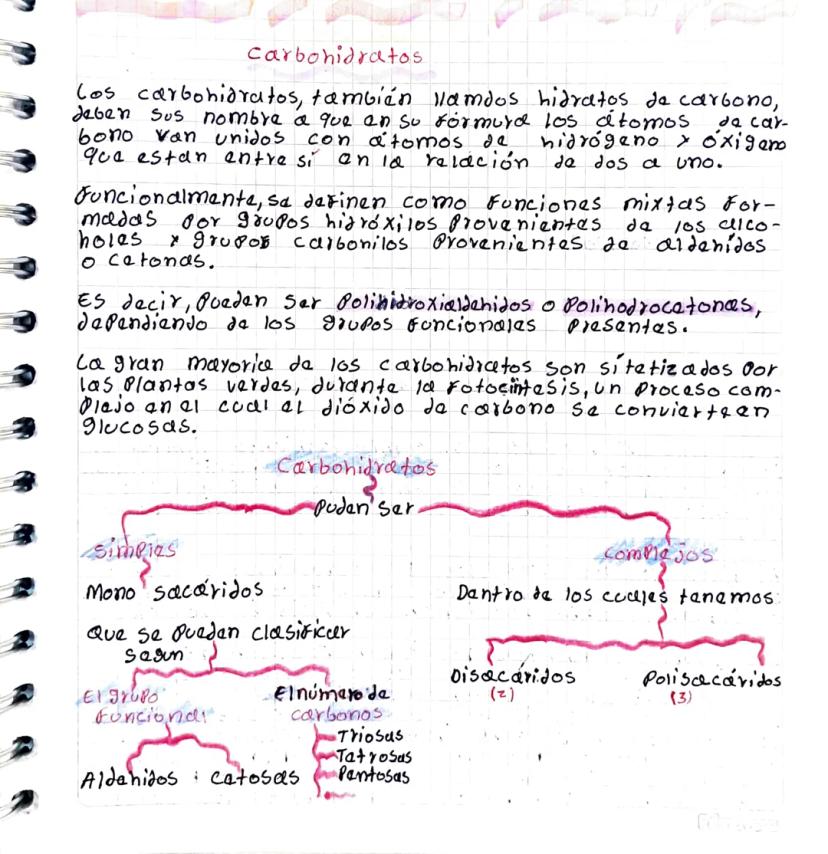 Carbohidratos
Los carbohidratos, también llamdos hidratos de carbono,
deben sus nombre a que en su fórmura los átomos de car-
bono van unidos con átomos de hidrógeno y óxigeno
que estan entre sí en la relación de dos a uno.
Funcionalmente, se definen como funciones mixtas for-
madas por grupos hidróxilos provenientes de los alco-
holes y grupos carbonilos provenientes de aldehidos
o cetonas.
Es decir, pueden ser polihidroxialdehidos o polihodrocetonas,
dependiendo de los grupos funcionales presentes.
La gran mayoria de los carbohidratos son sítetizados por
las plantas verdes, durante la fotocíntesis, un proceso com-
plejo en el cual el dióxido de carbono se convierteen
glucosas.
Carbohidratos
puden ser
Simples
Complejos
Mono sacáridos
Dentro de los cuales tenemos
Que se puedan clasificar
segun
Disacáridos
Polisacáridos
(2)
(3)
El grupo
El número de
funcional
carbonos
Triosas
Tetrosas
Aldehidos i cetosas
Pentosas